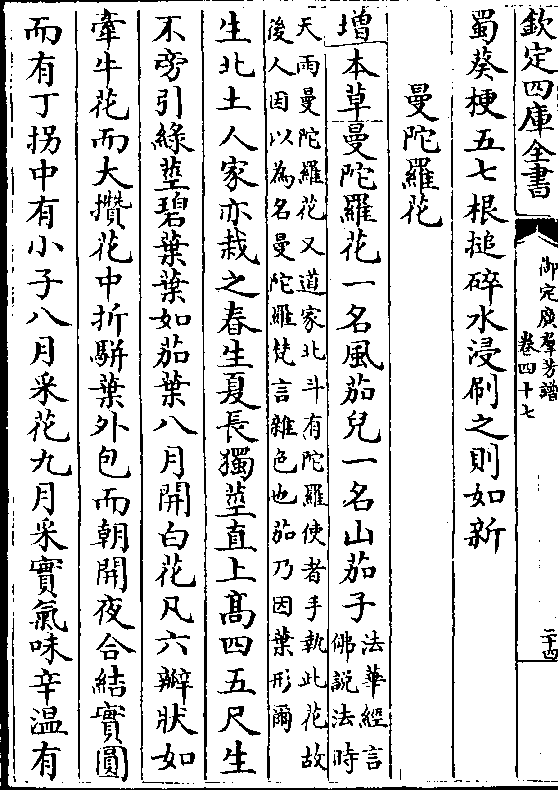 欽定四庫全書
御定廣羣芳譜
卷四十七
二十四
蜀葵梗五七根搥碎水浸刷之則如新
曼陀羅花
增本草曼陀羅花一名風茄兒一名山茄子法華經言
佛説法時
天雨曼陀羅花又道家北斗有陀羅使者手執此花故
後人因以為名曼陀羅梵言雜色也茄乃因葉形爾
生北土人家亦栽之春生夏長獨莖直上髙四五尺生
不旁引綠莖碧葉葉如茄葉八月開白花凡六瓣狀如
牽牛花而大攢花中折駢葉外包而朝開夜合結實圓
而有丁拐中有小子八月采花九月采實氣味辛温有